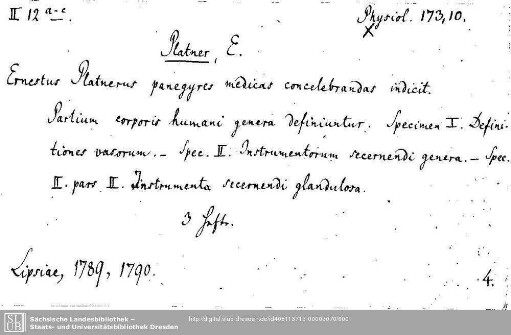 II 12 a-c.
Physiol. 173,10.
Platner, E.
Ernestus Platnerus panegyres medicas concelebrandas indicit.
Partium corporis humani genera definiuntur. Specimen I. Defini-
tiones vasorum. – Spec. II. Instrumentorum secernendi genera. – Spec.
II. pars II. Instrumenta secernendi glandulosa.
3 Hefte.
Lipsiae, 1789, 1790.
4.
SLUB
Sächsische Landesbibliothek –
Staats- und Universitätsbibliothek Dresden